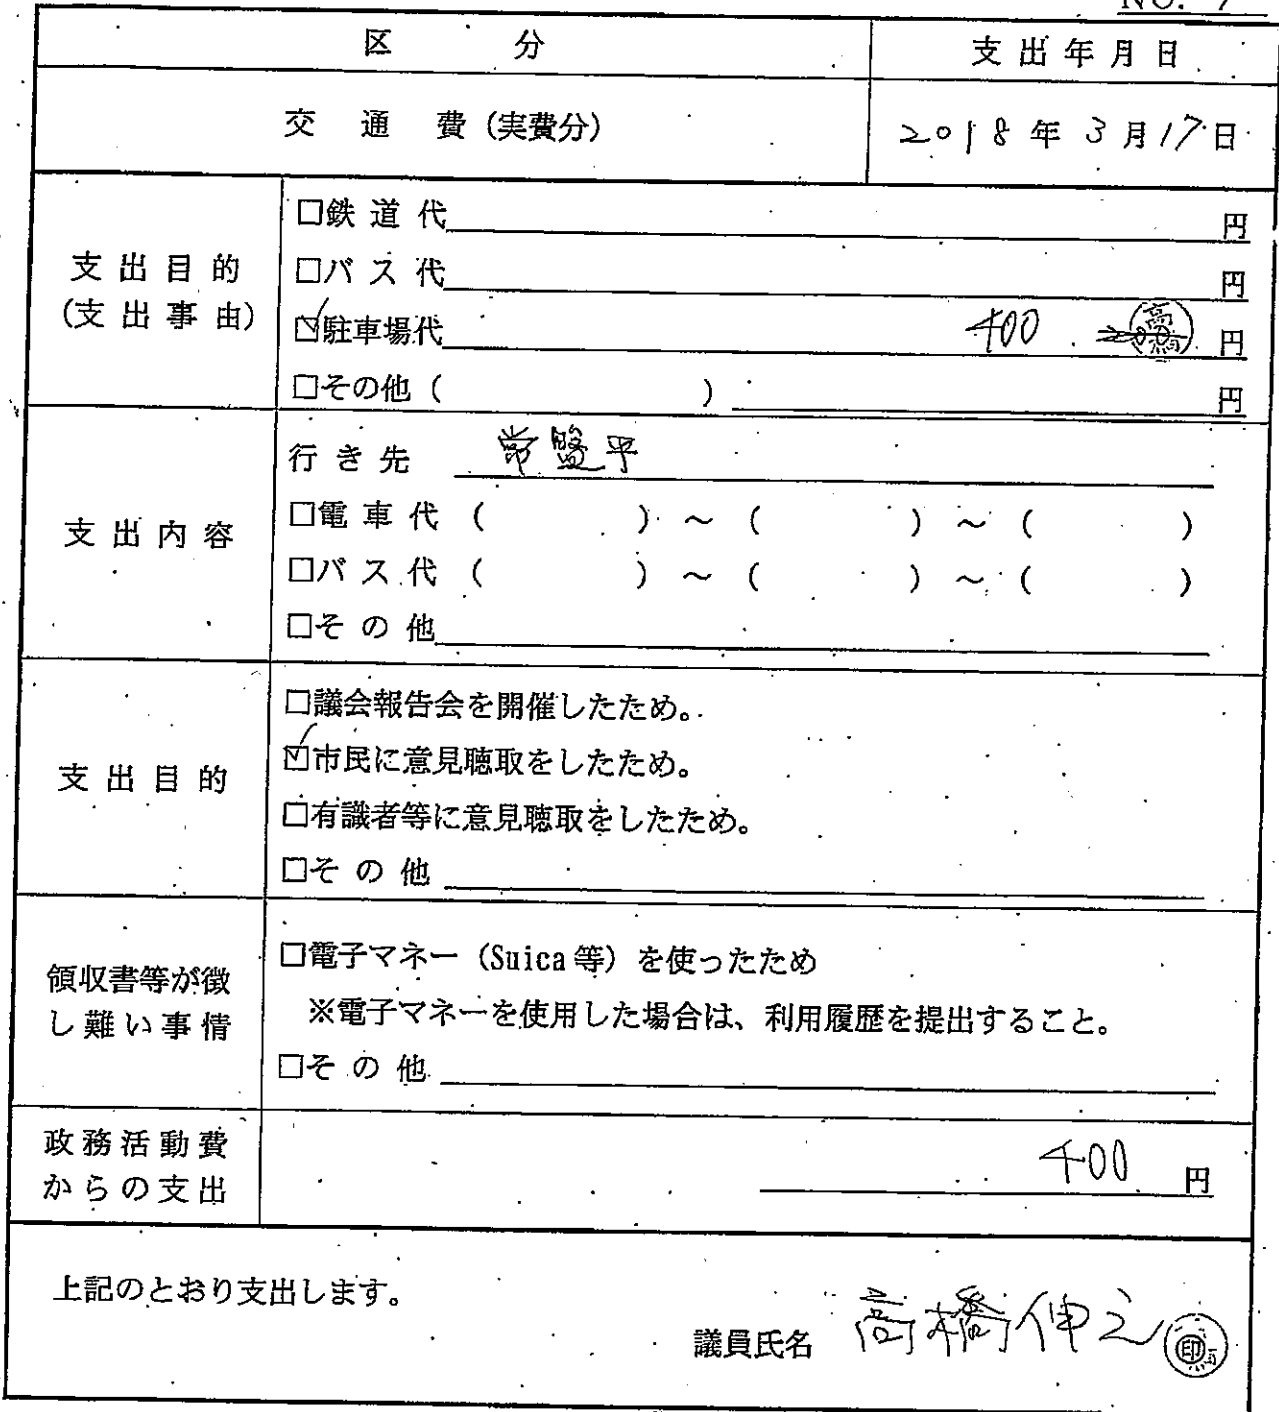 NO. 7
区 分 支出年月日
交通費(実費分) 2018年3月17日
支出目的
(支出事由)
□鉄道代 円
□バス代 円
☑駐車場代 400 200 円
□その他( ) 円
支出内容
行き先 常盤平
□電車代( )~( )~( )
□バス代( )~( )~( )
□その他
支出目的
□議会報告会を開催したため。
☑市民に意見聴取をしたため。
□有識者等に意見聴取をしたため。
□その他
領収書等が徴
し難い事情
□電子マネー(Suica等)を使ったため
※電子マネーを使用した場合は、利用履歴を提出すること。
□その他
政務活動費
からの支出
400 円
上記のとおり支出します。
議員氏名 高橋伸之 印